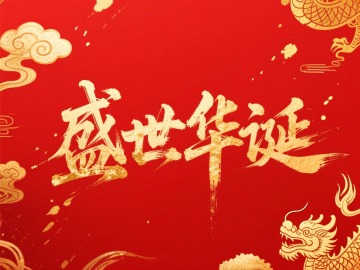 盛世华诞